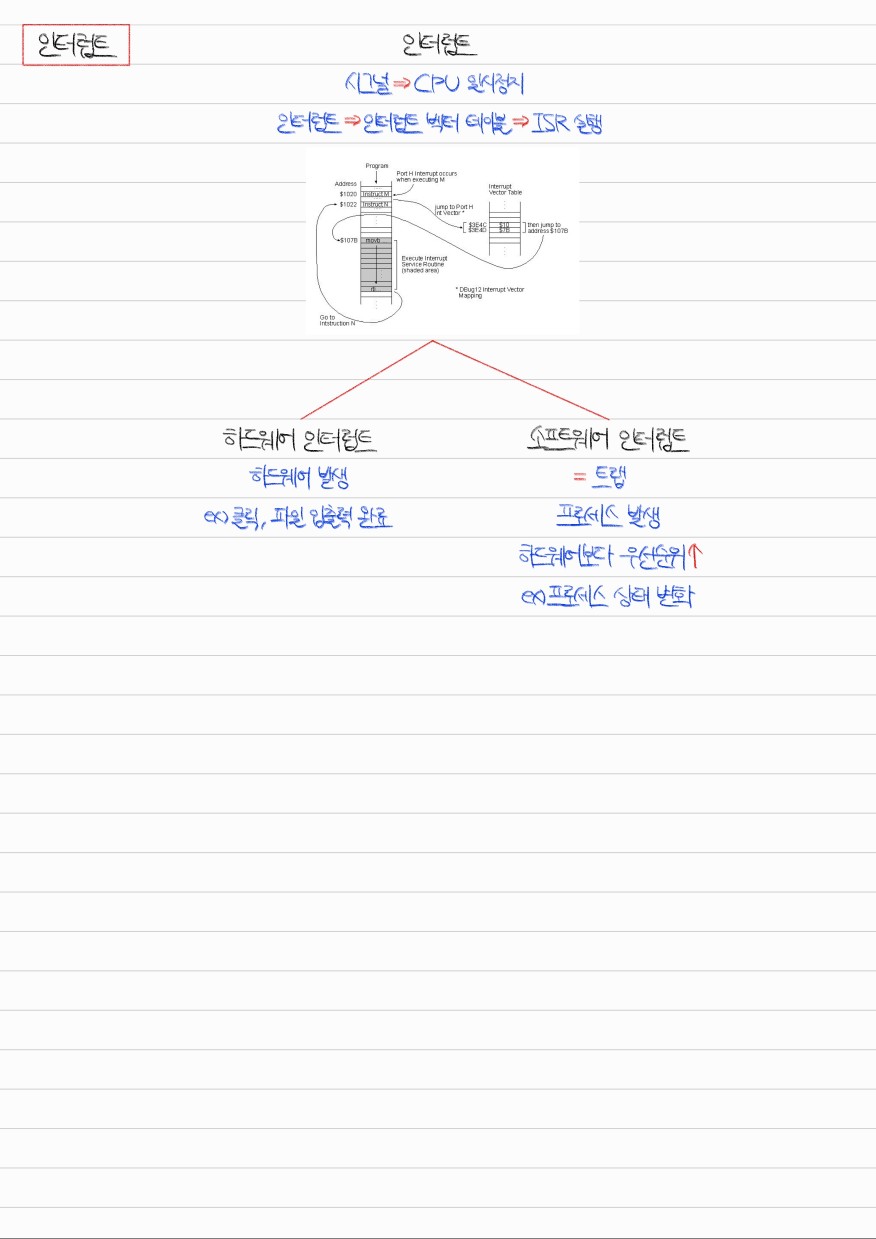 인터럽트
인터럽트
시그널 ⇒ CPU 일시정지
인터럽트 ⇒ 인터럽트 벡터 테이블 ⇒ ISR 실행
Program
Port H Interrupt occurs
when executing M
Address
$1020 Instruct M
$1022 Instruct N
Interrupt
Vector Table
jump to Port H
Int Vector *
$3E4C $10
$3E4D $7B
then jump to
address $107B
$107B movb
Execute Interrupt
Service Routine
(shaded area)
* DBug12 Interrupt Vector
Mapping
Go to
Intstruction N
하드웨어 인터럽트
하드웨어 발생
ex) 클릭, 파일 입출력 완료
소프트웨어 인터럽트
= 트랩
프로세스 발생
하드웨어보다 우선순위↑
ex) 프로세스 상태 변화